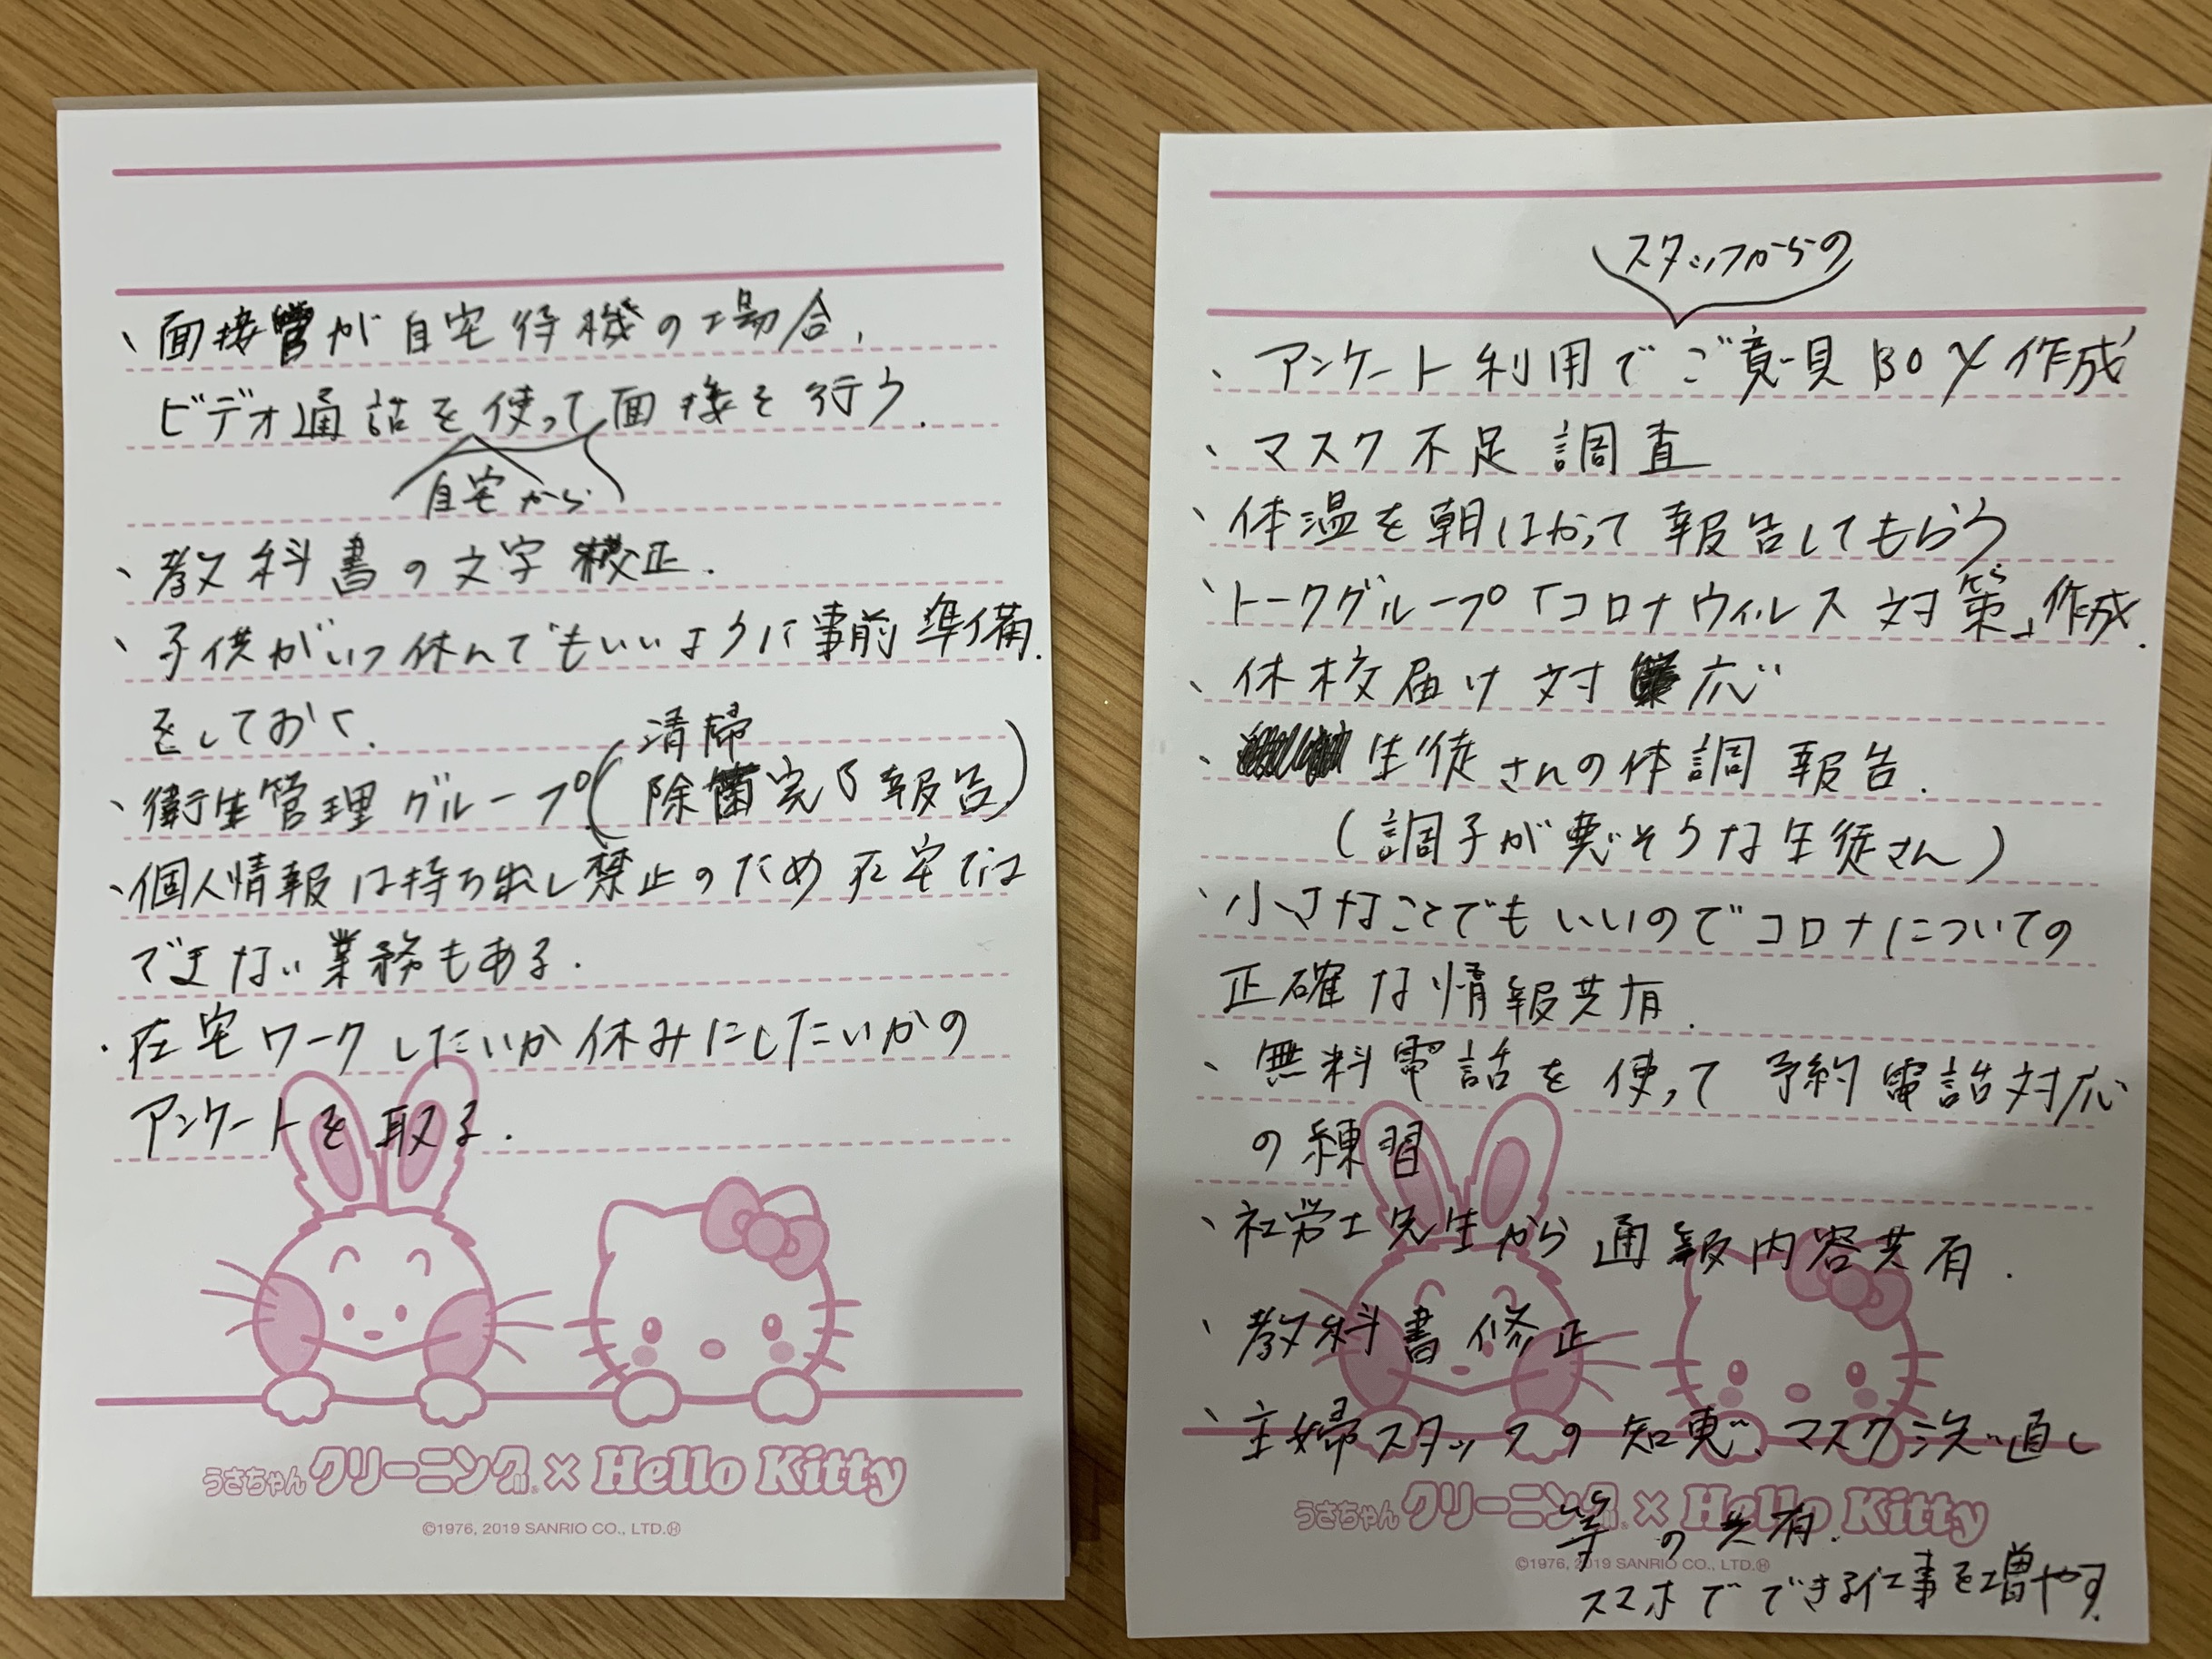 、面接官が自宅待機の場合、
ビデオ通話を使って面接を行う.
自宅から
、教科書の文字校正.
、子供がいつ休んでもいいように事前準備.
をしておく.
、衛生管理グループ(清掃
除菌完了報告)
、個人情報は持ち出し禁止のため在宅では
できない業務もある.
・在宅ワークしたいか休みにしたいかの
アンケートを取る.
うさちゃんクリーニング × Hello Kitty
©1976, 2019 SANRIO CO., LTD.Ⓗ
スタッフからの
、アンケート利用でご意見BOX作成
、マスク不足調査
、体温を朝はかって報告してもらう
、トークグループ「コロナウィルス対策」作成.
、休校届け対応
、生徒さんの体調報告.
(調子が悪そうな生徒さん)
、小さなことでもいいのでコロナについての
正確な情報共有.
、無料電話を使って予約電話対応
の練習
、社労士先生から通報内容共有.
、教科書修正
、主婦スタッフの知恵、マスク洗い直し
うさちゃんクリーニング × Hello Kitty
等の共有.
©1976, 2019 SANRIO CO., LTD.Ⓗ
スマホでできる仕事を増やす.